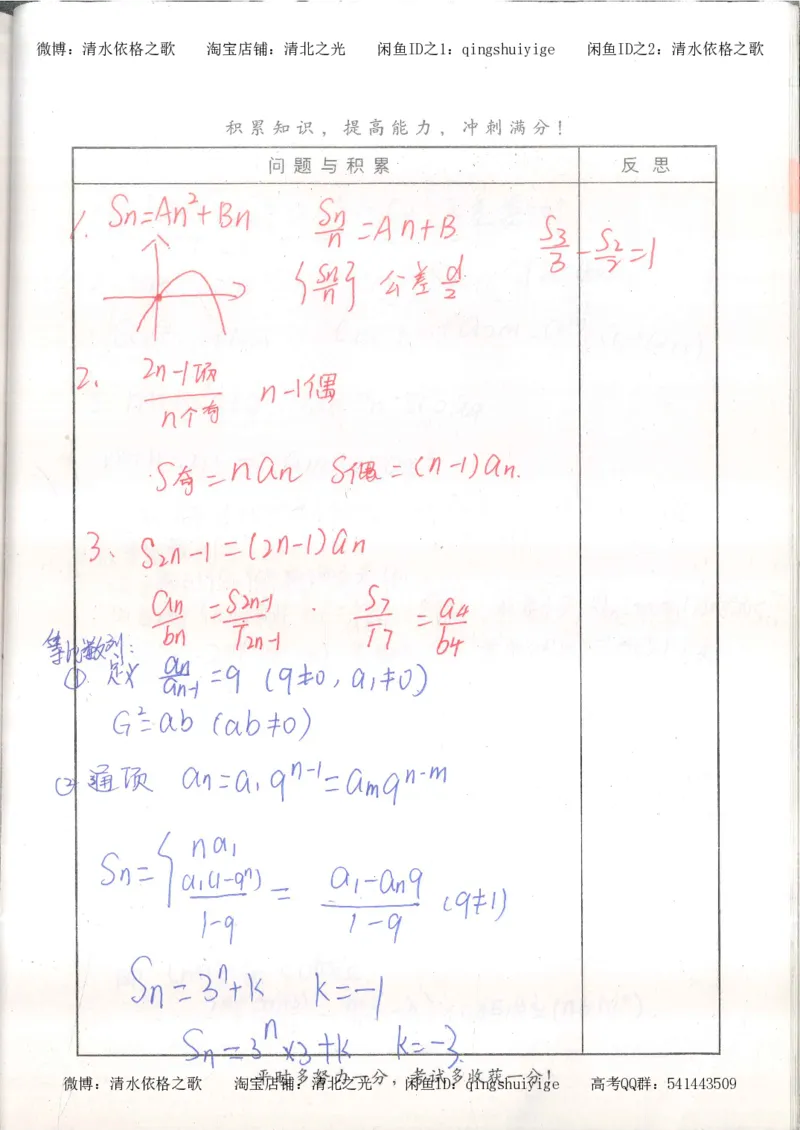 微博：清水依格之歌 淘宝店铺：清北之光 闲鱼ID之1：qingshuiyige 闲鱼ID之2：清水依格之歌
积累知识，提高能力，冲刺满分！
问题与积累 反思
1. Sn=An²+Bn Sn/n=An+B S3/3-S2/2=1
{Sn/n} 公差d/2
2. 2n-1项/n个奇 n-1偶
S奇=nan S偶=(n-1)an.
3、S2n-1=(2n-1)an
an/bn=S2n-1/T2n-1 . S7/T7=a4/b4
等比数列：
① 定义 an/an-1=q (q≠0, a1≠0)
G²=ab (ab≠0)
② 通项 an=a1qⁿ⁻¹=amqⁿ⁻ᵐ
Sn={na1
a1(1-qⁿ)/1-q = a1-anq/1-q (q≠1)
Sn=3ⁿ+k k=-1
Sn=3ⁿ×3+k k=-3.
平时多努力一分，考试多收获一分！
微博：清水依格之歌 淘宝店铺：清北之光 闲鱼ID：qingshuiyige 高考QQ群：541443509